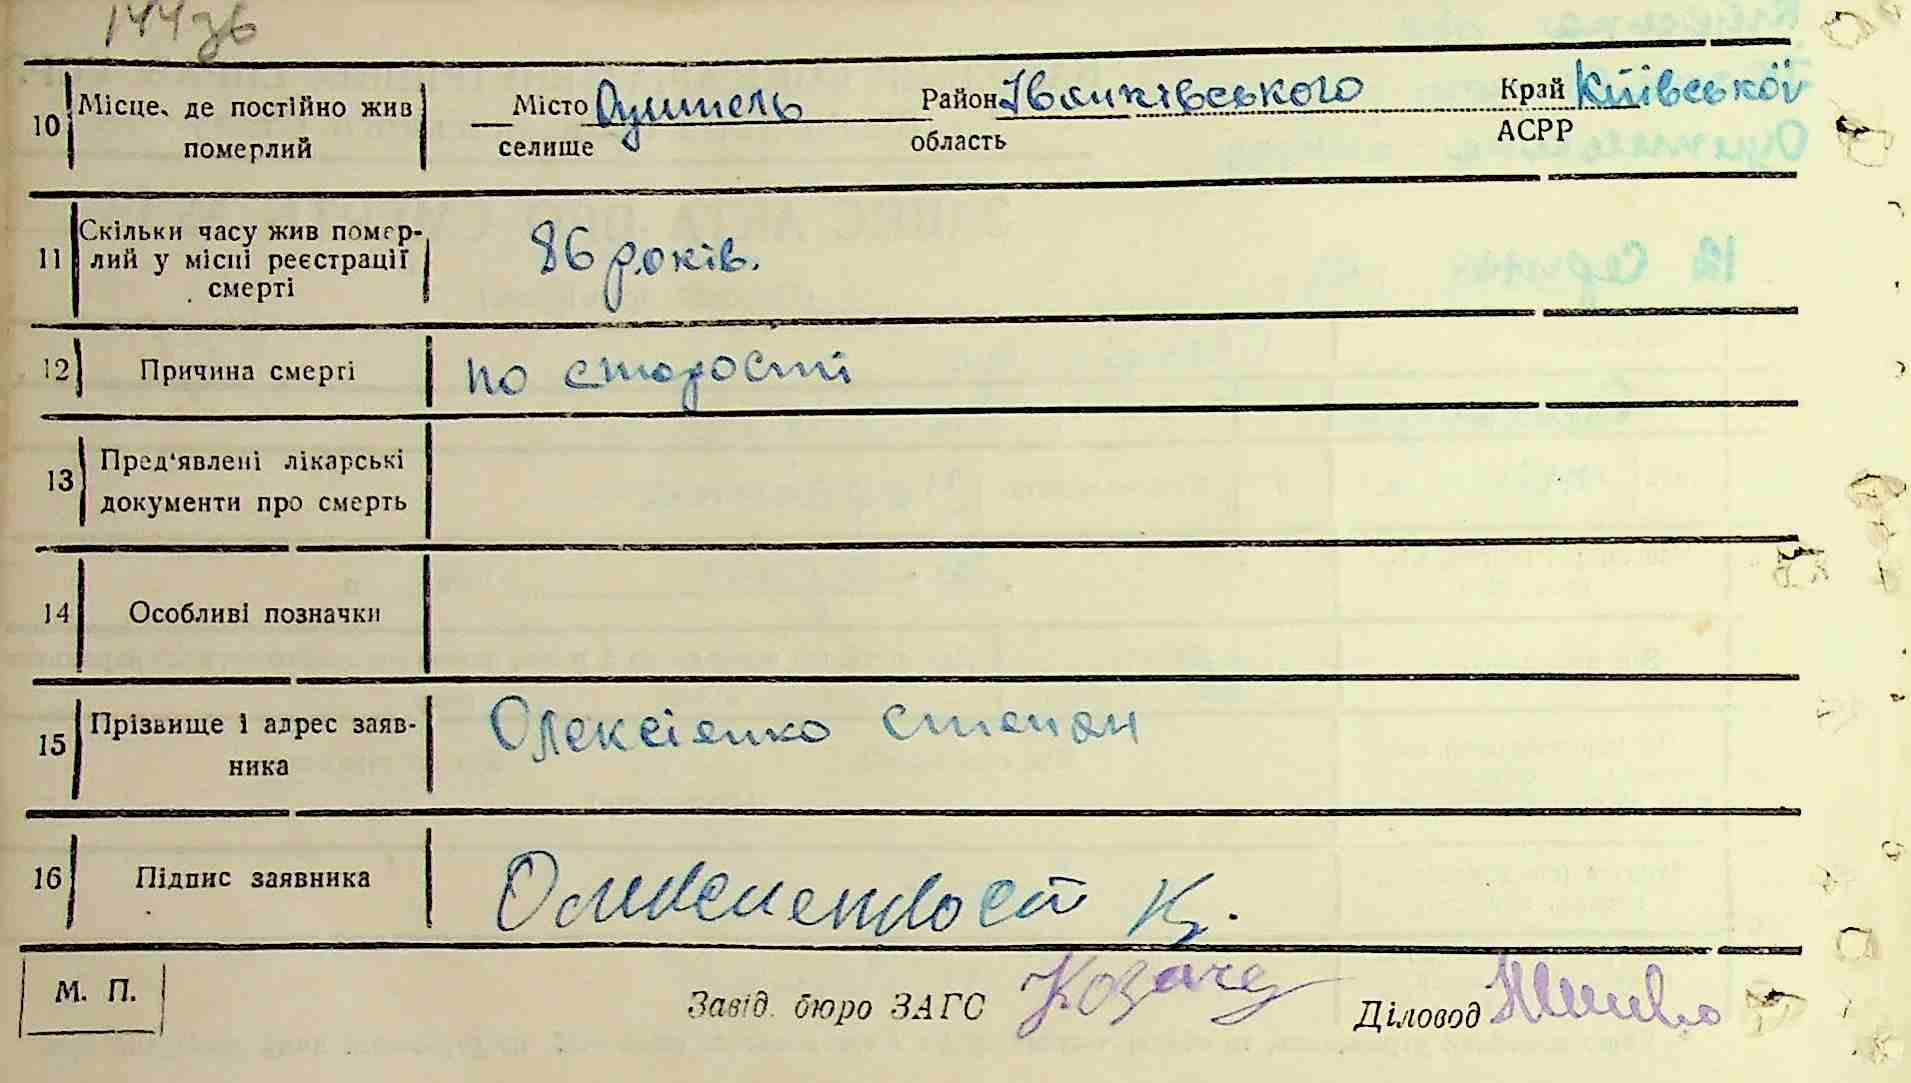 144 зв
10 Місце, де постійно жив померлий
Місто Оцитель Район Іванківського Край Київської
селище область АСРР
11 Скільки часу жив помер-
лий у місці реєстрації
смерті
86 років.
12 Причина смерті по старості
13 Пред'явлені лікарські
документи про смерть
14 Особливі позначки
15 Прізвище і адрес заяв-
ника
Олексієнко Степан
16 Підпис заявника
М. П.
Завід. бюро ЗАГС Діловод